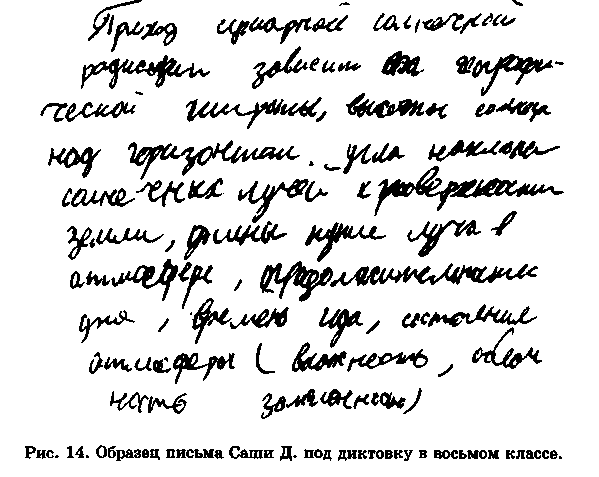 Приход суммарной солнечной
радиации зависит от
ческой широты, высоты солнца
над горизонтом. угла наклона
солнечных лучей к поверхности
земли, длины пути луча в
атмосфере, продолжительности
дня, времени года, состояния
атмосферы (влажность, облач
ность)
Рис. 14. Образец письма Саши Д. под диктовку в восьмом классе.